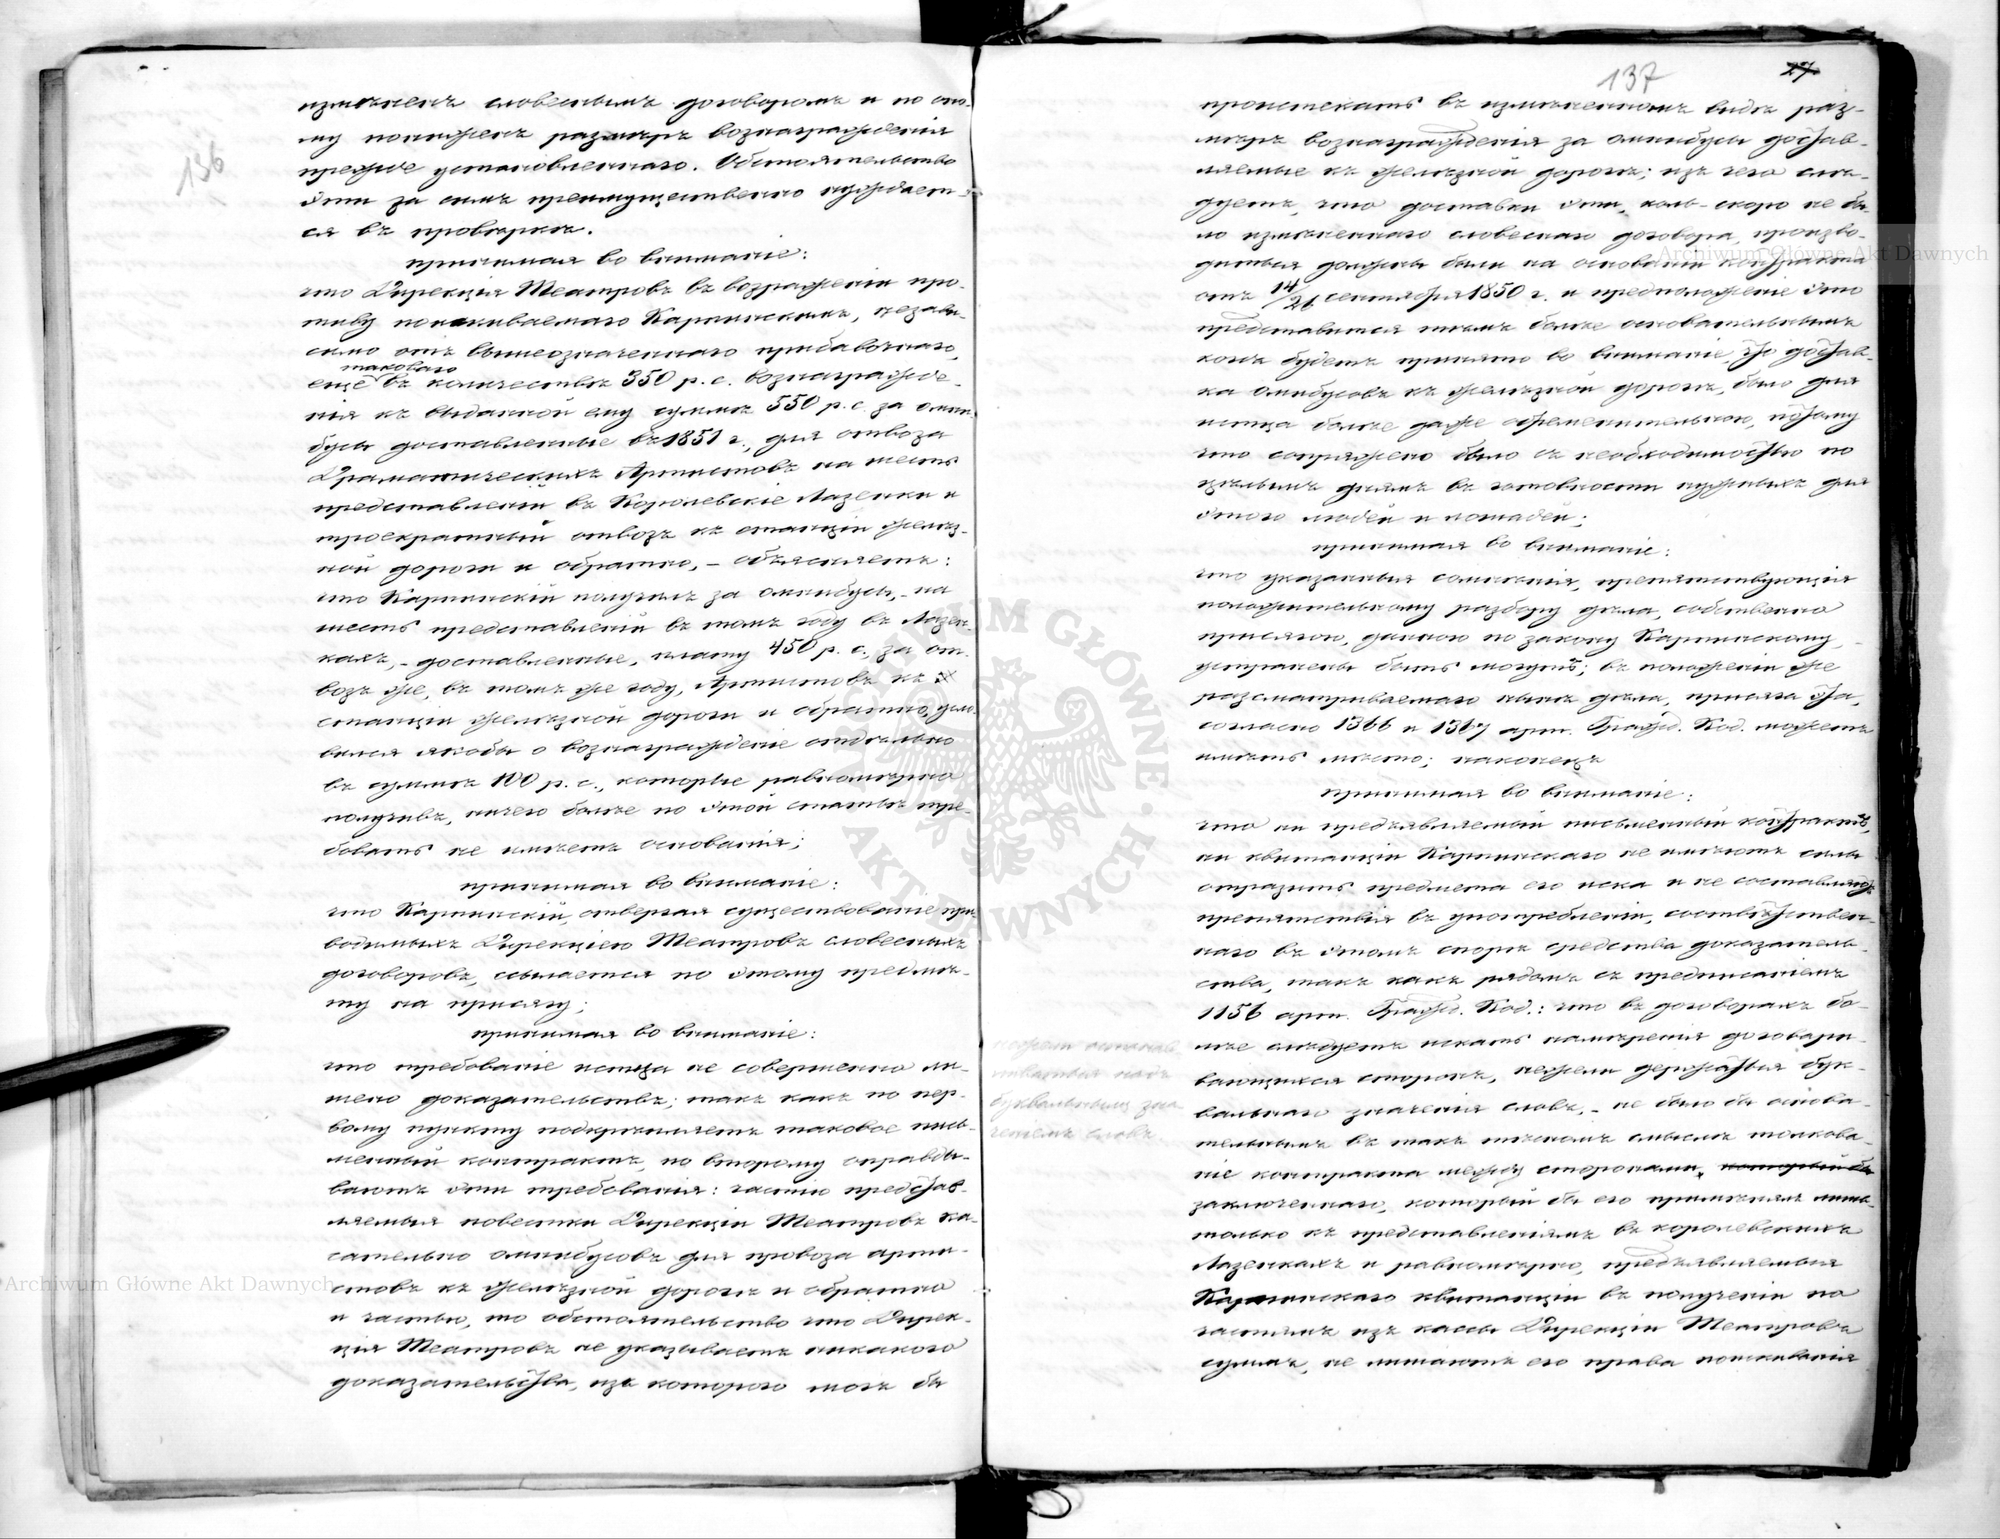 136
измѣненъ словеснымъ договоромъ и по это-
му пониженъ размѣръ вознагражденія
прежде установленнаго. Обстоятельство
это за симъ преимущественно нуждает-
ся въ провѣркѣ.
принимая во вниманіе:
что Дирекція Театровъ въ возраженіи про-
тиву поискиваемаго Карпинскимъ, незави-
симо отъ вышеозначеннаго прибавочнаго,
таковаго
еще въ количествѣ 350 р. с. вознагражде-
нія къ выданной ему суммѣ 550 р. с. за омни-
бусы доставленные въ 1851 г., для отвоза
Драматическихъ Артистовъ на шесть
представленій въ Королевскіе Лазенки и
троекратный отвозъ къ станціи желѣз-
ной дороги и обратно, – объясняетъ:
что Карпинскій получилъ за омнибусы, – на
шесть представленій въ томъ году въ Лазен-
кахъ, – доставленные, плату 450 р. с., за от-
возъ же, въ томъ же году, Артистовъ къ
станціи желѣзной дороги и обратно, усло-
вился якобы о вознагражденіе отдѣльно
въ суммѣ 100 р. с., которые равномѣрно
получивъ, ничего болѣе по этой статьѣ тре-
бовать не имѣетъ основанія;
принимая во вниманіе:
что Карпинскій, отвергая существованіе при-
водимыхъ Дирекціею Театровъ словесныхъ
договоровъ, ссылается по этому предме-
ту на присягу;
принимая во вниманіе:
что требованіе истца не совершенно ли-
шено доказательствъ; такъ какъ по пер-
вому пункту подкрѣпляетъ таковое пись-
менный контрактъ, по второму оправды-
ваютъ эти требованія: частію представ-
ляемыя повестки Дирекціи Театровъ ка-
сательно омнибусовъ для провоза арти-
стовъ къ желѣзной дорогѣ и обратно
и частью, то обстоятельство что Дирек-
ція Театровъ не указываетъ никакого
доказательства, изъ котораго могъ бы
137
27
проистекать въ измѣненномъ видѣ раз-
мѣръ вознагражденія за омнибусы достав-
ляемые къ желѣзной дорогѣ; изъ чего слѣ-
дуетъ, что доставки эти, коль-скоро не бы-
ло измѣненнаго словеснаго договора, произво-
диться должны были на основаніи контракта
отъ 14/26 сентября 1850 г. и предположеніе это
представится тѣмъ болѣе основательнымъ
когда будетъ принято во вниманіе, что достав-
ка омнибусовъ къ желѣзной дорогѣ, было для
истца болѣе даже обременительною, потому
что сопряжено было съ необходимостью по
цѣлымъ днямъ въ готовности нужныхъ для
этого людей и лошадей;
принимая во вниманіе:
что указанныя сомнѣнія, препятствующія
положительному разбору дѣла, собственно
присягою, данною по закону Карпинскому,
устранены быть могутъ; въ положеніи же
разсматриваемаго нынѣ дѣла, присяга эта,
согласно 1366 и 1367 арт. Гражд. Код. можетъ
имѣть мѣсто; наконецъ
принимая во вниманіе:
что ни предъявляемый письменный контрактъ,
ни квитанціи Карпинскаго не имѣютъ силы
отразить предмета его иска и не составляютъ
препятствія въ употребленіи, соотвѣтствен-
наго въ этомъ спорѣ средства доказатель-
ства, такъ какъ рядомъ съ предписаніемъ
1156 арт. Гражд. Код.: что въ договорахъ бо-
лѣе слѣдуетъ искать намѣренія договари-
вающихся сторонъ, нежели держаться бук-
вальнаго значенія словъ, – не было бы основа-
тельнымъ въ такъ тѣсномъ смыслѣ толкова-
ніе контракта между сторонами, который бы
заключеннаго, который бы его примѣнялъ лишь
только къ представленіямъ въ королевскихъ
Лазенкахъ и равномѣрно, предъявляемыя
Карпинскаго квитанціи въ полученіи по
частямъ изъ кассы Дирекціи Театровъ
суммъ, не лишаютъ его права поискиванія